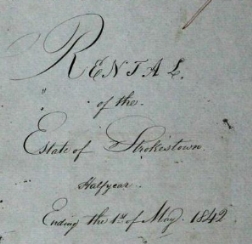 RENTAL.
" of the.
Estate of Strokestown
Halfyear.
Ending the 1st of May. 1842